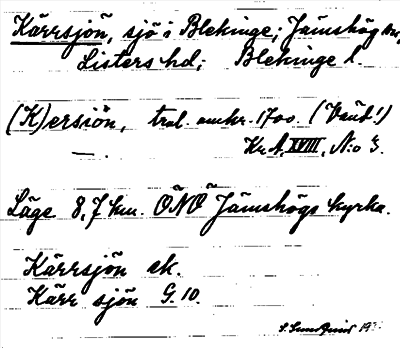 Kärrsjön, sjö i Blekinge; Jämshög sn,
Listers hd; Blekinge l.
(K)ersiön, trol. omkr. 1700. (Vard!)
— . KrA, XVIII, No 3.
Läge 8,7 km. ÖNÖ Jämshögs kyrka.
Kärrsjön ek.
Kärr sjön G. 10.